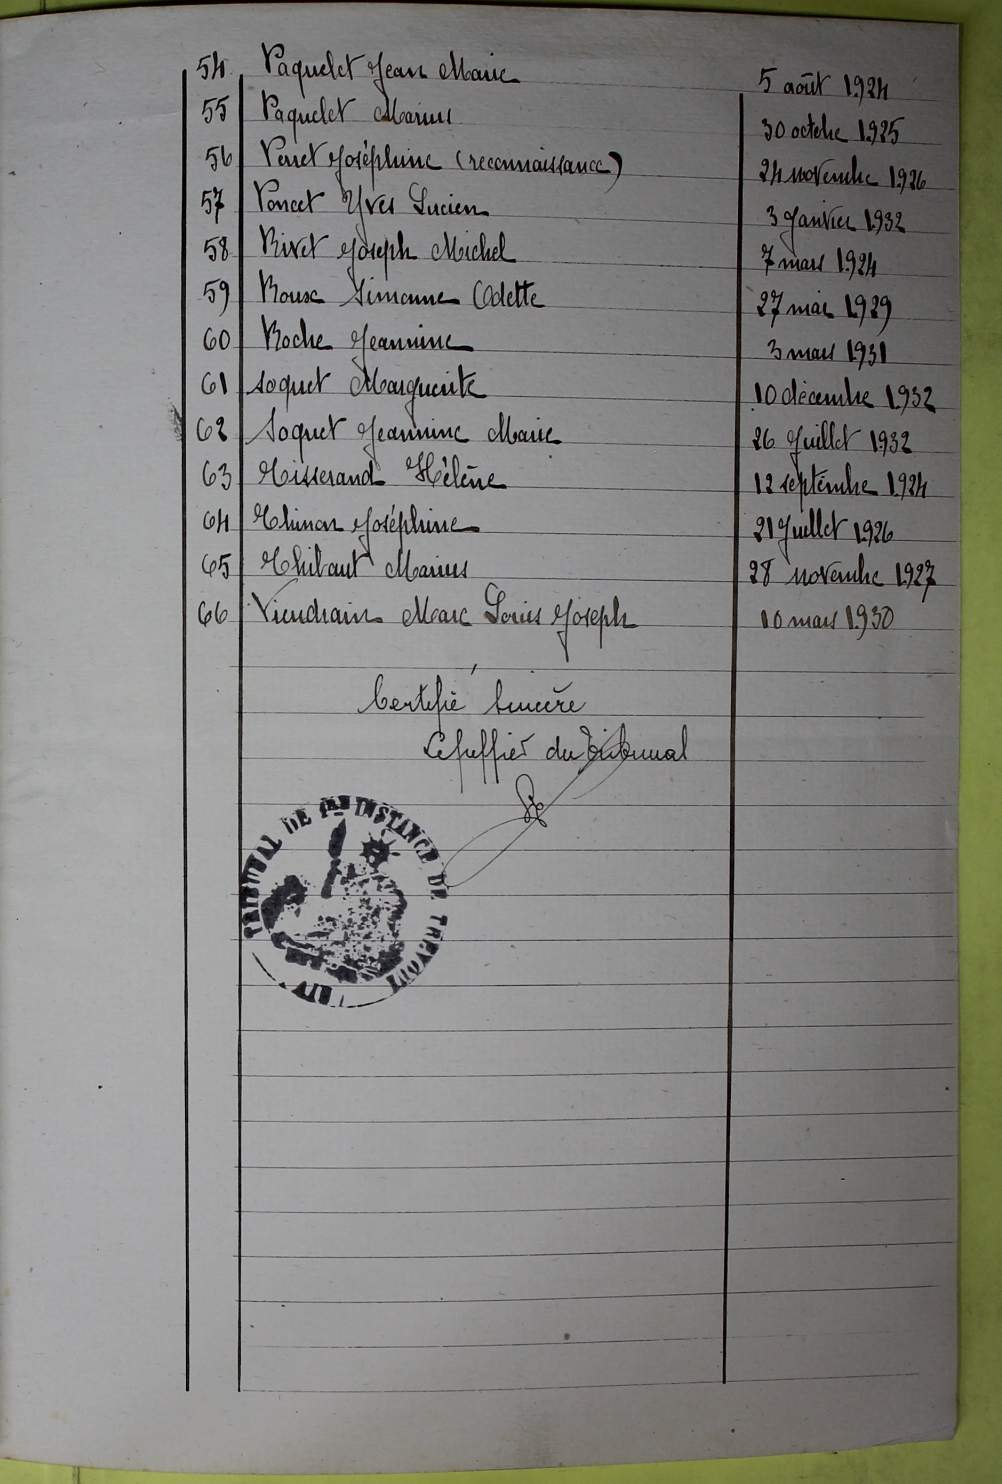 54 Paquelet Jean Marie 5 août 1924
55 Paquelet Marius 30 octobre 1925
56 Perret Joséphine (reconnaissance) 24 novembre 1926
57 Poncet Yves Lucien 3 Janvier 1932
58 Rivet Joseph Michel 7 mars 1924
59 Roux Simonne Odette 27 mai 1929
60 Roche Jeannine 3 mars 1931
61 Soquet Marguerite 10 décembre 1932
62 Soquet Jeannine Marie 26 Juillet 1932
63 Tisserand Hélène 12 septembre 1924
64 Thimon Joséphine 21 Juillet 1926
65 Thibaut Marius 28 novembre 1927
66 Vieudrain Marc Louis Joseph 10 mars 1930
Certifié sincère
Le greffier du Tribunal
TRIBUNAL DE 1ERE INSTANCE DE TREVOUX